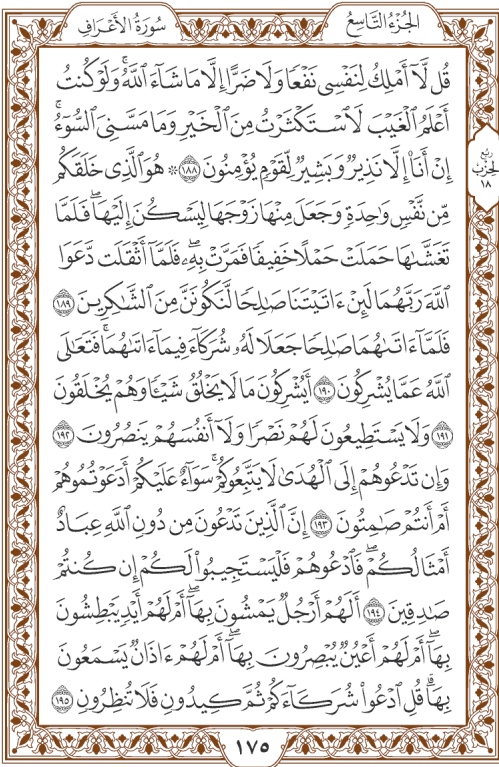 الجُزْءُ التَّاسِعُ
سُورَةُ الأَعْرَافِ
قُل لَّآ أَمْلِكُ لِنَفْسِى نَفْعًا وَلَا ضَرًّا إِلَّا مَا شَآءَ ٱللَّهُۚ وَلَوْ كُنتُ
أَعْلَمُ ٱلْغَيْبَ لَٱسْتَكْثَرْتُ مِنَ ٱلْخَيْرِ وَمَا مَسَّنِىَ ٱلسُّوٓءُۚ
إِنْ أَنَا۠ إِلَّا نَذِيرٌ وَبَشِيرٌ لِّقَوْمٍ يُؤْمِنُونَ ١٨٨ ۞ هُوَ ٱلَّذِى خَلَقَكُم
مِّن نَّفْسٍ وَٰحِدَةٍ وَجَعَلَ مِنْهَا زَوْجَهَا لِيَسْكُنَ إِلَيْهَاۖ فَلَمَّا
تَغَشَّىٰهَا حَمَلَتْ حَمْلًا خَفِيفًا فَمَرَّتْ بِهِۦۖ فَلَمَّآ أَثْقَلَت دَّعَوَا
ٱللَّهَ رَبَّهُمَا لَئِنْ ءَاتَيْتَنَا صَٰلِحًا لَّنَكُونَنَّ مِنَ ٱلشَّٰكِرِينَ ١٨٩
فَلَمَّآ ءَاتَىٰهُمَا صَٰلِحًا جَعَلَا لَهُۥ شُرَكَآءَ فِيمَآ ءَاتَىٰهُمَاۚ فَتَعَٰلَى
ٱللَّهُ عَمَّا يُشْرِكُونَ ١٩٠ أَيُشْرِكُونَ مَا لَا يَخْلُقُ شَيْـًٔا وَهُمْ يُخْلَقُونَ
١٩١ وَلَا يَسْتَطِيعُونَ لَهُمْ نَصْرًا وَلَآ أَنفُسَهُمْ يَنصُرُونَ ١٩٢
وَإِن تَدْعُوهُمْ إِلَى ٱلْهُدَىٰ لَا يَتَّبِعُوكُمْۚ سَوَآءٌ عَلَيْكُمْ أَدَعَوْتُمُوهُمْ
أَمْ أَنتُمْ صَٰمِتُونَ ١٩٣ إِنَّ ٱلَّذِينَ تَدْعُونَ مِن دُونِ ٱللَّهِ عِبَادٌ
أَمْثَالُكُمْۖ فَٱدْعُوهُمْ فَلْيَسْتَجِيبُوا۟ لَكُمْ إِن كُنتُمْ
صَٰدِقِينَ ١٩٤ أَلَهُمْ أَرْجُلٌ يَمْشُونَ بِهَآۖ أَمْ لَهُمْ أَيْدٍ يَبْطِشُونَ
بِهَآۖ أَمْ لَهُمْ أَعْيُنٌ يُبْصِرُونَ بِهَآۖ أَمْ لَهُمْ ءَاذَانٌ يَسْمَعُونَ
بِهَاۗ قُلِ ٱدْعُوا۟ شُرَكَآءَكُمْ ثُمَّ كِيدُونِ فَلَا تُنظِرُونِ ١٩٥
رُبْع
الحِزْبِ
١٨
١٧٥